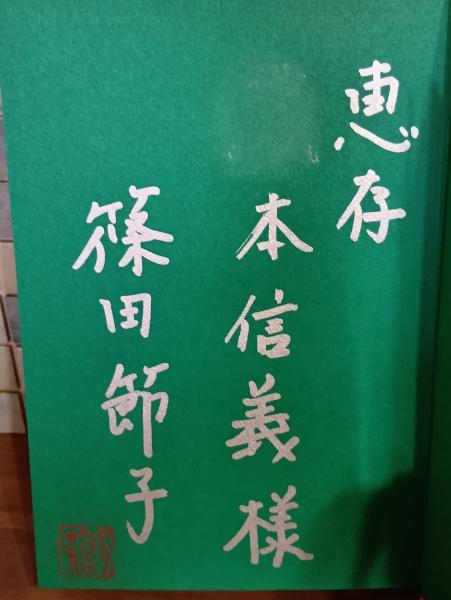 恵存
本信義様
篠田節子